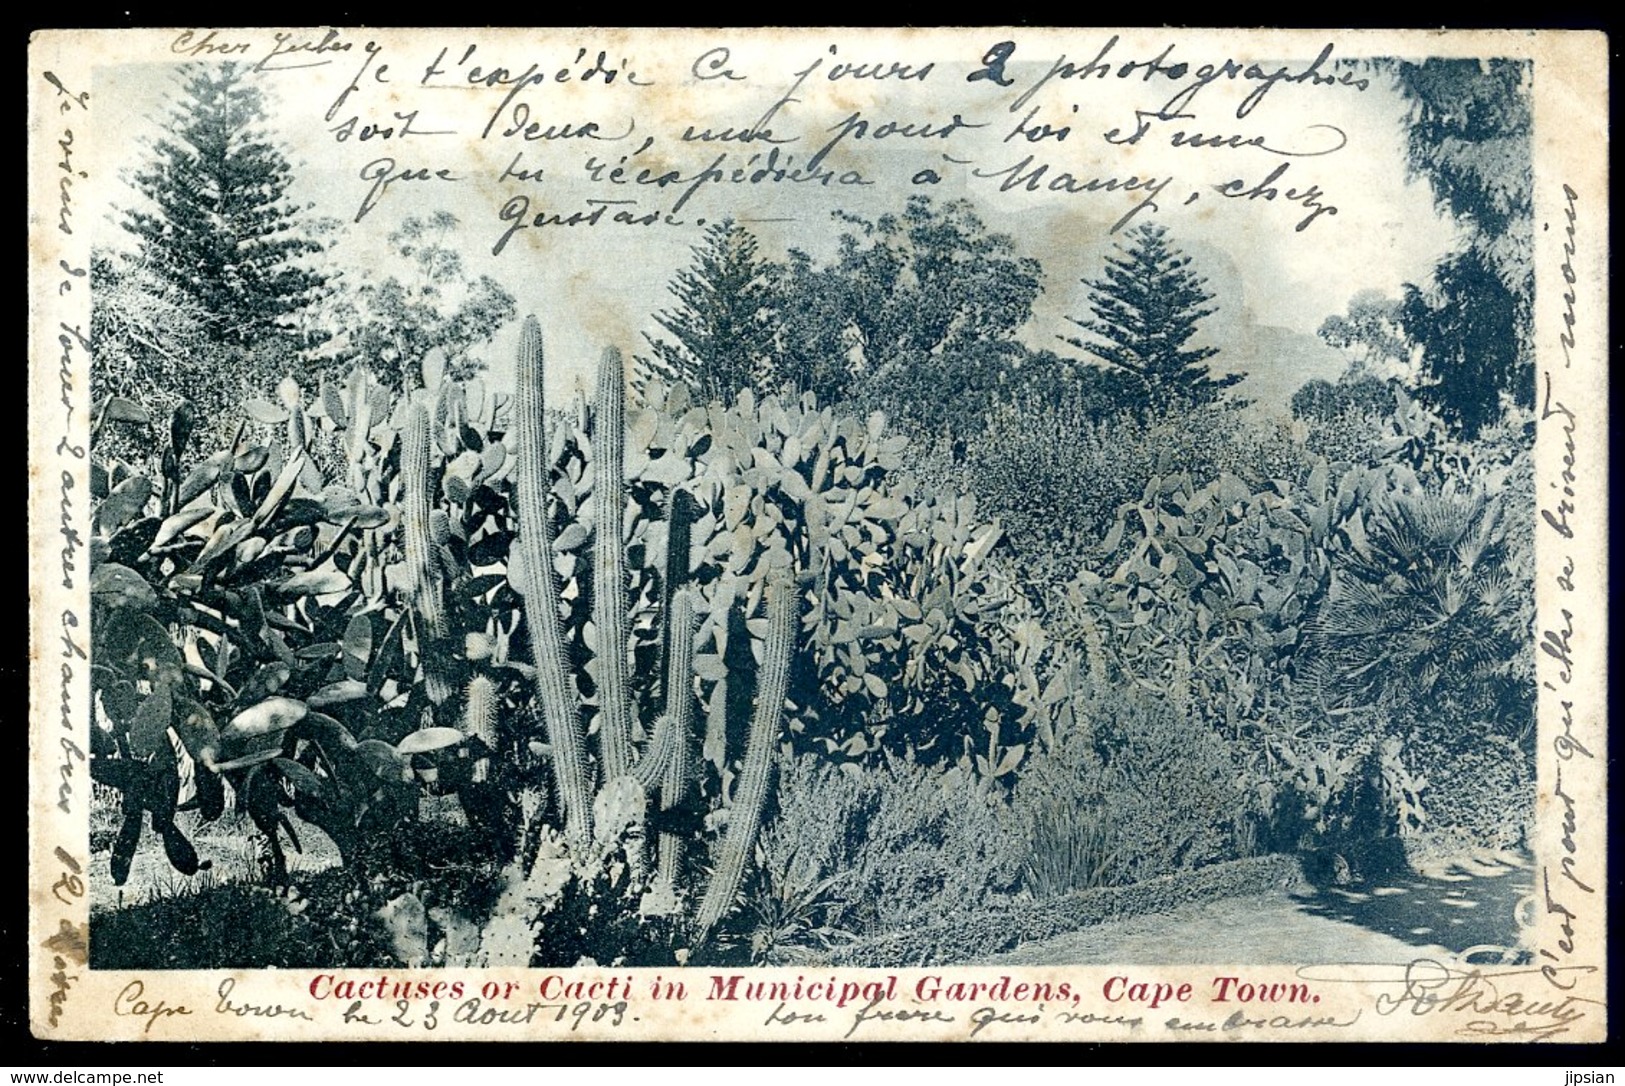 Cher Jules
Je t'expédie ce jours 2 photographies
soit deux, une pour toi et une
que tu réexpédiera à Nancy, chez
Gustave.
Je viens de louer 2 autres chambres 12
C'est pour qu'elles se brisent moins
Cactuses or Cacti in Municipal Gardens, Cape Town.
Cape Town le 23 Aout 1903.
ton frere qui vous embrasse
www.delcampe.net
jipsian